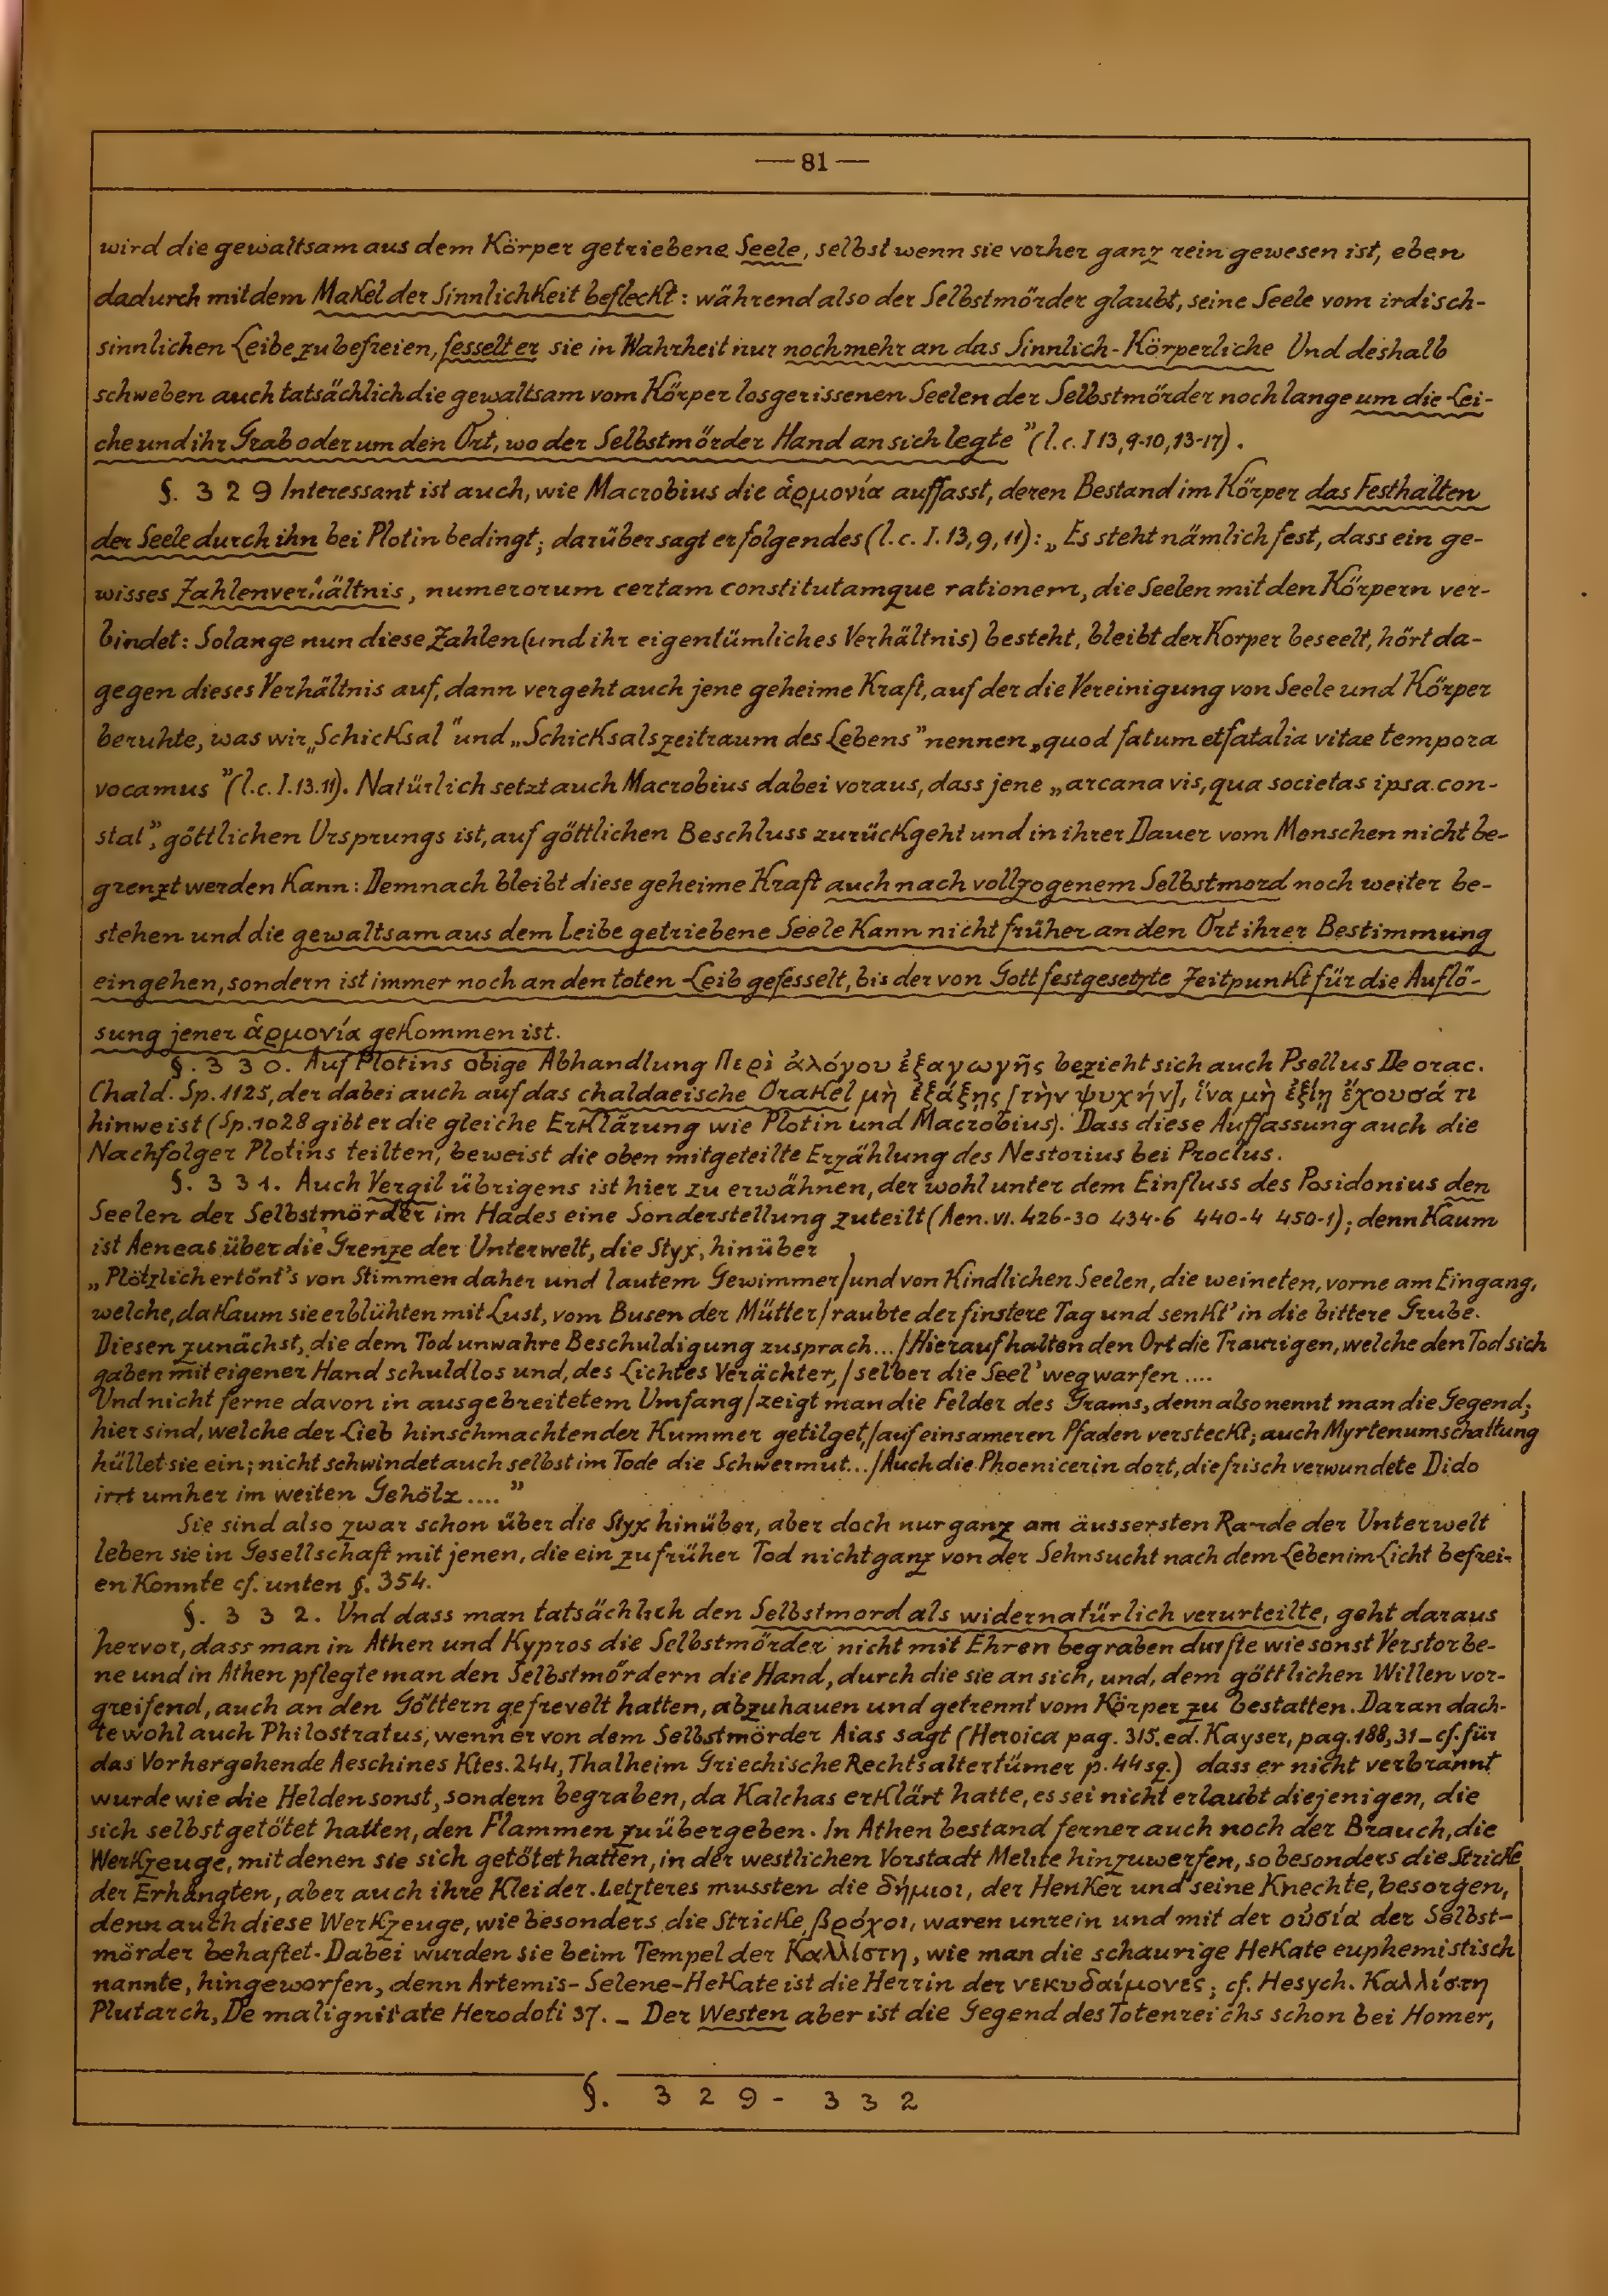 — 81 —
wird die gewaltsam aus dem Körper getriebene Seele, selbst wenn sie vorher ganz rein gewesen ist, eben
dadurch mit dem Makel der Sinnlichkeit befleckt: während also der Selbstmörder glaubt, seine Seele vom irdisch-
sinnlichen Leibe zu befreien, fesselt er sie in Wahrheit nur noch mehr an das Sinnlich-Körperliche Und deshalb
schweben auch tatsächlich die gewaltsam vom Körper losgerissenen Seelen der Selbstmörder noch lange um die Lei-
che und ihr Grab oder um den Ort, wo der Selbstmörder Hand an sich legte" (l.c. I 13, 9-10, 13-17).
§. 329 Interessant ist auch, wie Macrobius die ἁρμονία auffasst, deren Bestand im Körper das Festhalten
der Seele durch ihn bei Plotin bedingt; darüber sagt er folgendes (l.c. I. 13, 9, 11): „Es steht nämlich fest, dass ein ge-
wisses Zahlenverhältnis, numerorum certam constitutamque rationem, die Seelen mit den Körpern ver-
bindet: Solange nun diese Zahlen (und ihr eigentümliches Verhältnis) besteht, bleibt der Korper beseelt, hört da-
gegen dieses Verhältnis auf, dann vergeht auch jene geheime Kraft, auf der die Vereinigung von Seele und Körper
beruhte, was wir „Schicksal" und „Schicksalszeitraum des Lebens" nennen „quod fatum et fatalia vitae tempora
vocamus" (l.c. I. 13. 11). Natürlich setzt auch Macrobius dabei voraus, dass jene „arcana vis, qua societas ipsa con-
stat", göttlichen Ursprungs ist, auf göttlichen Beschluss zurückgeht und in ihrer Dauer vom Menschen nicht be-
grenzt werden kann: Demnach bleibt diese geheime Kraft auch nach vollzogenem Selbstmord noch weiter be-
stehen und die gewaltsam aus dem Leibe getriebene Seele kann nicht früher an den Ort ihrer Bestimmung
eingehen, sondern ist immer noch an den toten Leib gefesselt, bis der von Gott festgesetzte Zeitpunkt für die Auflö-
sung jener ἁρμονία gekommen ist.
§. 330. Auf Plotins obige Abhandlung Περὶ ἀλόγου ἐξαγωγῆς bezieht sich auch Psellus De orac.
Chald. Sp. 1125, der dabei auch auf das chaldaeische Orakel μὴ ἐξάξῃς [τὴν ψυχήν], ἵνα μὴ ἐξίῃ ἔχουσά τι
hinweist (Sp. 1028 gibt er die gleiche Erklärung wie Plotin und Macrobius). Dass diese Auffassung auch die
Nachfolger Plotins teilten, beweist die oben mitgeteilte Erzählung des Nestorius bei Proclus.
§. 331. Auch Vergil übrigens ist hier zu erwähnen, der wohl unter dem Einfluss des Posidonius den
Seelen der Selbstmörder im Hades eine Sonderstellung zuteilt (Aen. VI. 426-30 434-6 440-4 450-1); denn kaum
ist Aeneas über die Grenze der Unterwelt, die Styx, hinüber
„Plötzlich ertönt's von Stimmen daher und lautem Gewimmer / und von kindlichen Seelen, die weineten, vorne am Eingang,
welche, da kaum sie erblühten mit Lust, vom Busen der Mütter / raubte der finstere Tag und senkt' in die bittere Grube.
Diesen zunächst, die dem Tod unwahre Beschuldigung zusprach... / Hierauf halten den Ort die Traurigen, welche den Tod sich
gaben mit eigener Hand schuldlos und, des Lichtes Verächter, / selber die Seel' wegwarfen ....
Und nicht ferne davon in ausgebreitetem Umfang / zeigt man die Felder des Grams, denn also nennt man die Gegend;
hier sind, welche der Lieb hinschmachtender Kummer getilget, / auf einsameren Pfaden versteckt; auch Myrtenumschattung
hüllet sie ein; nicht schwindet auch selbst im Tode die Schwermut... / Auch die Phoenicerin dort, die frisch verwundete Dido
irrt umher im weiten Gehölz ...."
Sie sind also zwar schon über die Styx hinüber, aber doch nur ganz am äussersten Rande der Unterwelt
leben sie in Gesellschaft mit jenen, die ein zu früher Tod nicht ganz von der Sehnsucht nach dem Leben im Licht befrei-
en konnte cf. unten §. 354.
§. 332. Und dass man tatsächlich den Selbstmord als widernatürlich verurteilte, geht daraus
hervor, dass man in Athen und Kypros die Selbstmörder nicht mit Ehren begraben durfte wie sonst Verstorbe-
ne und in Athen pflegte man den Selbstmördern die Hand, durch die sie an sich, und, dem göttlichen Willen vor-
greifend, auch an den Göttern gefrevelt hatten, abzuhauen und getrennt vom Körper zu bestatten. Daran dach-
te wohl auch Philostratus, wenn er von dem Selbstmörder Aias sagt (Heroica pag. 315. ed. Kayser, pag. 188, 31 – cf. für
das Vorhergehende Aeschines Ktes. 244, Thalheim Griechische Rechtsaltertümer p. 44 sq.) dass er nicht verbrannt
wurde wie die Helden sonst, sondern begraben, da Kalchas erklärt hatte, es sei nicht erlaubt diejenigen, die
sich selbst getötet hatten, den Flammen zu übergeben. In Athen bestand ferner auch noch der Brauch, die
Werkzeuge, mit denen sie sich getötet hatten, in der westlichen Vorstadt Melite hinzuwerfen, so besonders die Stricke
der Erhängten, aber auch ihre Kleider. Letzteres mussten die δήμιοι, der Henker und seine Knechte, besorgen,
denn auch diese Werkzeuge, wie besonders die Stricke βρόχοι, waren unrein und mit der οὐσία der Selbst-
mörder behaftet. Dabei wurden sie beim Tempel der Καλλίστη, wie man die schaurige Hekate euphemistisch
nannte, hingeworfen, denn Artemis-Selene-Hekate ist die Herrin der νεκυδαίμονες; cf. Hesych. Καλλίστη
Plutarch, De malignitate Herodoti 37. – Der Westen aber ist die Gegend des Totenreichs schon bei Homer,
§. 329 - 332